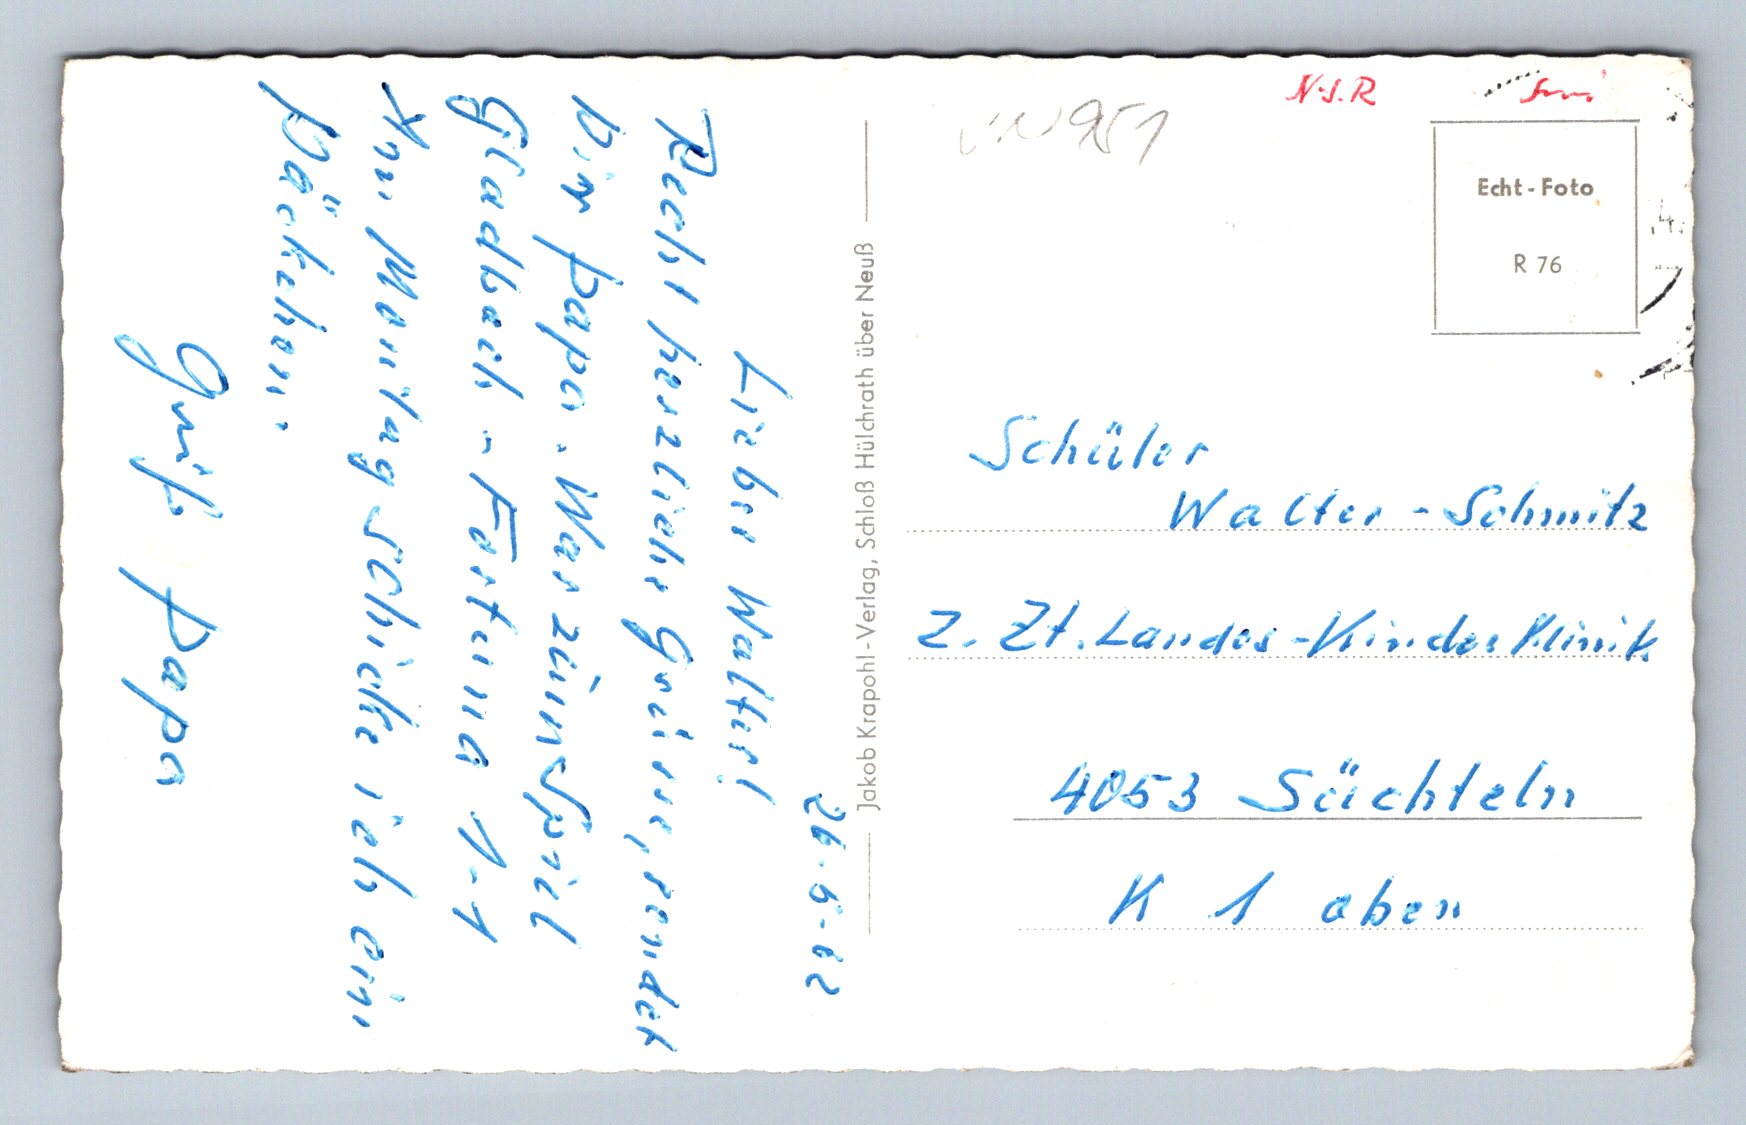 26.5.62
Lieber Walter!
Recht herzliche Grüsse, sendet
Dir papa. War zum Spiel
Gladbach - Fortuna 1-1
Am Montag schicke ich ein
Päckchen.
Gruß papa
Jakob Krapohl-Verlag, Schloß Hülchrath über Neuß
951
N.S.R
Echt-Foto
R 76
Schüler
Walter-Schmitz
Z. Zt. Landes-Kinder Klinik
4053 Süchteln
K 1 oben